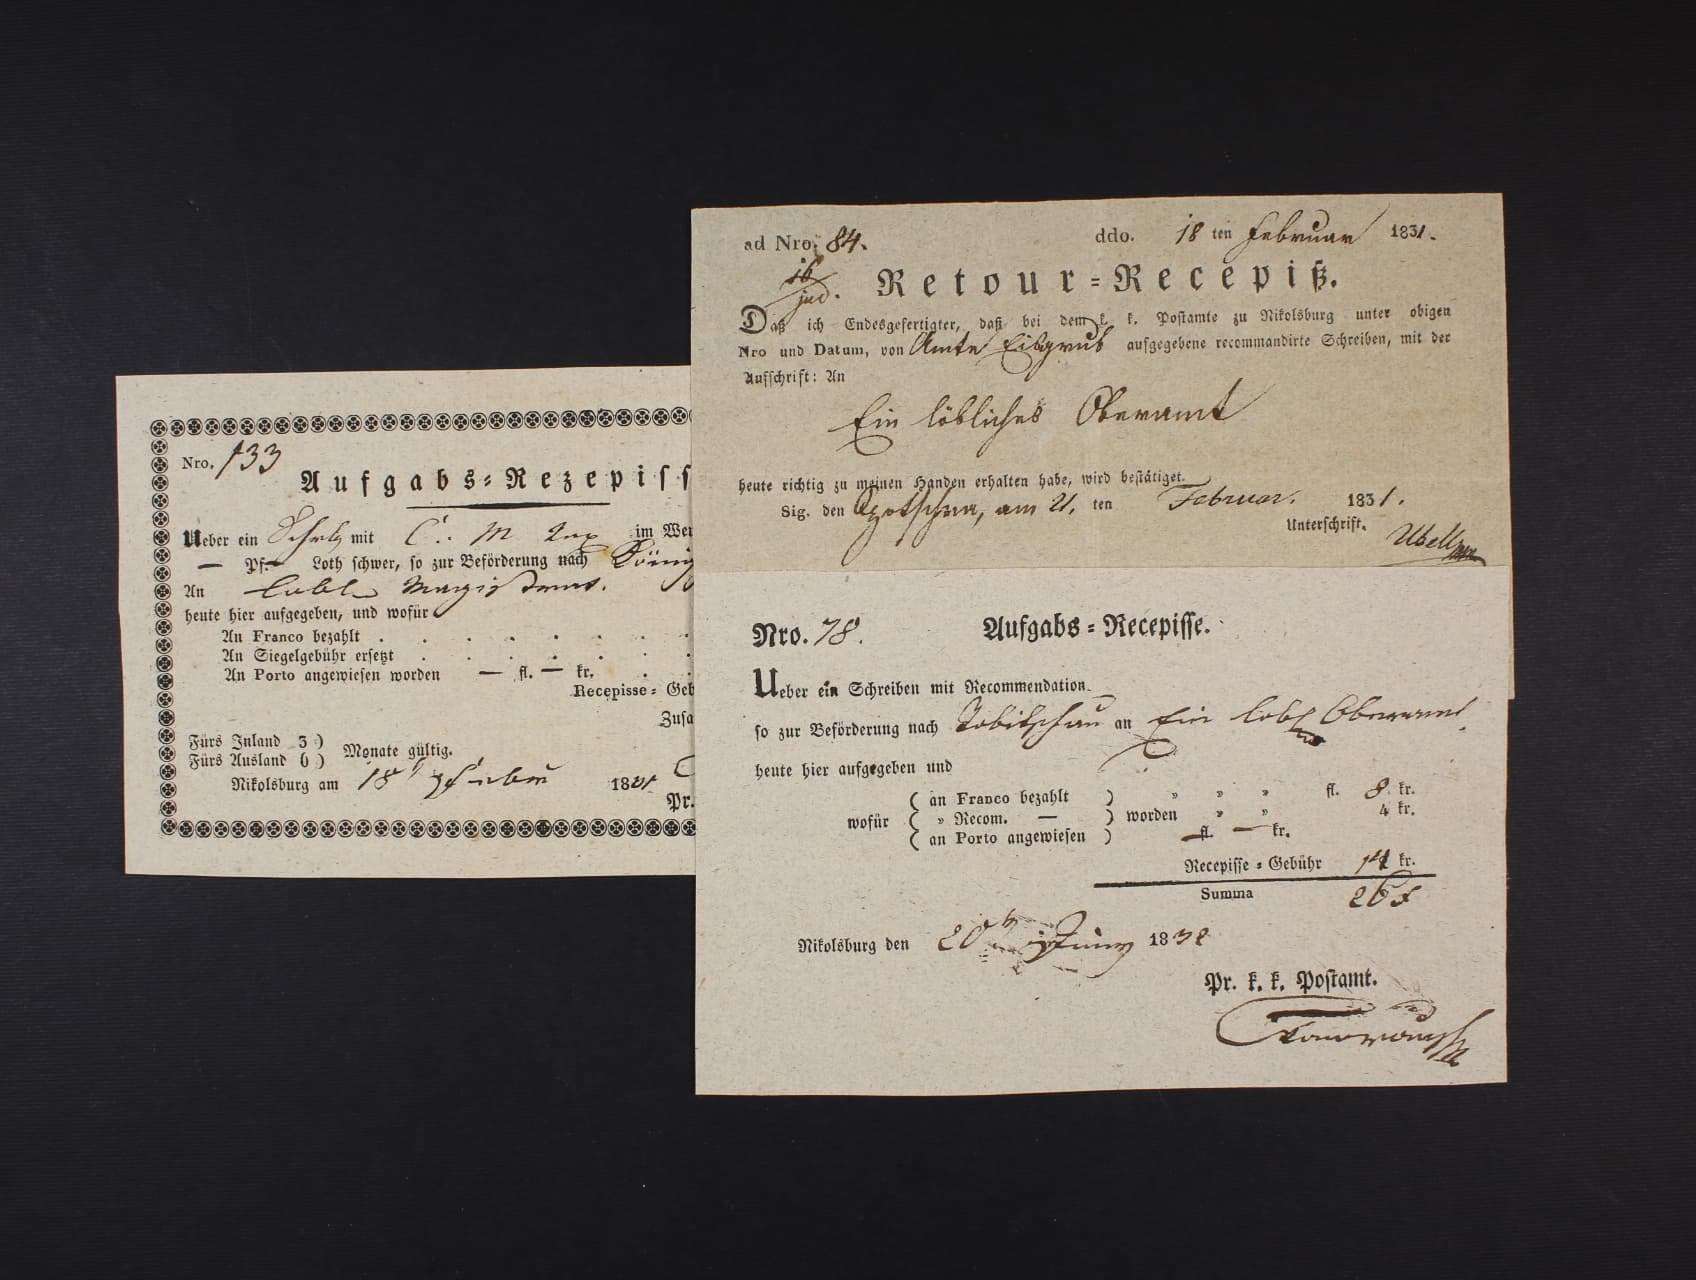 Nro. 133
Aufgabs-Rezepiss
Ueber ein Schrb mit C. M im Wer
— Pf. — Loth schwer, so zur Beförderung nach König
An Löbl. Magistrat.
heute hier aufgegeben, und wofür
An Franco bezahlt . . . . . . . .
An Siegelgebühr ersetzt . . . . . . .
An Porto angewiesen worden — fl. — kr. . .
Recepisse-Geb
Zusa
Fürs Inland 3 )
Fürs Ausland 6 ) Monate gültig.
Nikolsburg am 18 18
Pr.
ad Nro. 84. ddo. 18 ten Februar 1831.
jud.
Retour-Recepiß.
Daß ich Endesgefertigter, daß bei dem k. k. Postamte zu Nikolsburg unter obigen
Nro und Datum, von Amte Eisgrub aufgegebene recommandirte Schreiben, mit der
Aufschrift: An
Ein löbliches Oberamt
heute richtig zu meinen Handen erhalten habe, wird bestätiget.
Sig. den am 21. ten Februar. 1831.
Unterschrift.
Nro. 78. Aufgabs-Recepisse.
Ueber ein Schreiben mit Recommendation
so zur Beförderung nach Tobitschau an Ein löbl Oberamt.
heute hier aufgegeben und
( an Franco bezahlt ) „ „ „ fl. 8 kr.
wofür ( „ Recom. — ) worden „ „ 4 kr.
( an Porto angewiesen ) — fl. — kr.
Recepisse-Gebühr 14 kr.
Summa 26 x
Nikolsburg den 20 Juny 1832
Pr. k. k. Postamt.